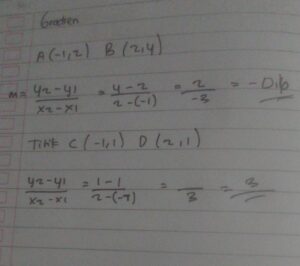 Gradien
A (-1,2) B (2,4)
m = y2-y1 / x2-x1 = 4-2 / 2-(-1) = 2 / -3 = -0,6
Titik C (-1,1) D (2,1)
y2-y1 / x2-x1 = 1-1 / 2-(-1) = / 3 = 3